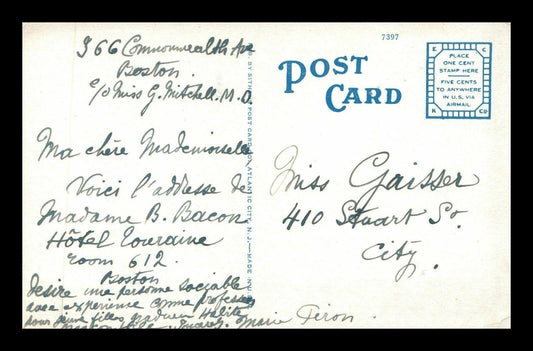 366 Commonwealth Ave
Boston.
c/o Miss G. Mitchell. M.D.
Ma chère Mademoiselle
Voici l'addresse de
Madame B. Bacon
Hôtel Touraine
room 612.
Boston
desire une personne sociable
avec experience comme
pour jeune filles
Marie Féron.
7397
POST CARD
PLACE
ONE CENT
STAMP HERE
FIVE CENTS
TO ANYWHERE
IN U.S. VIA
AIRMAIL
E C
K CO
POST CARD CO., ATLANTIC CITY, N. J. — MADE IN
Miss Gaisser
410 Stuart St.
City.